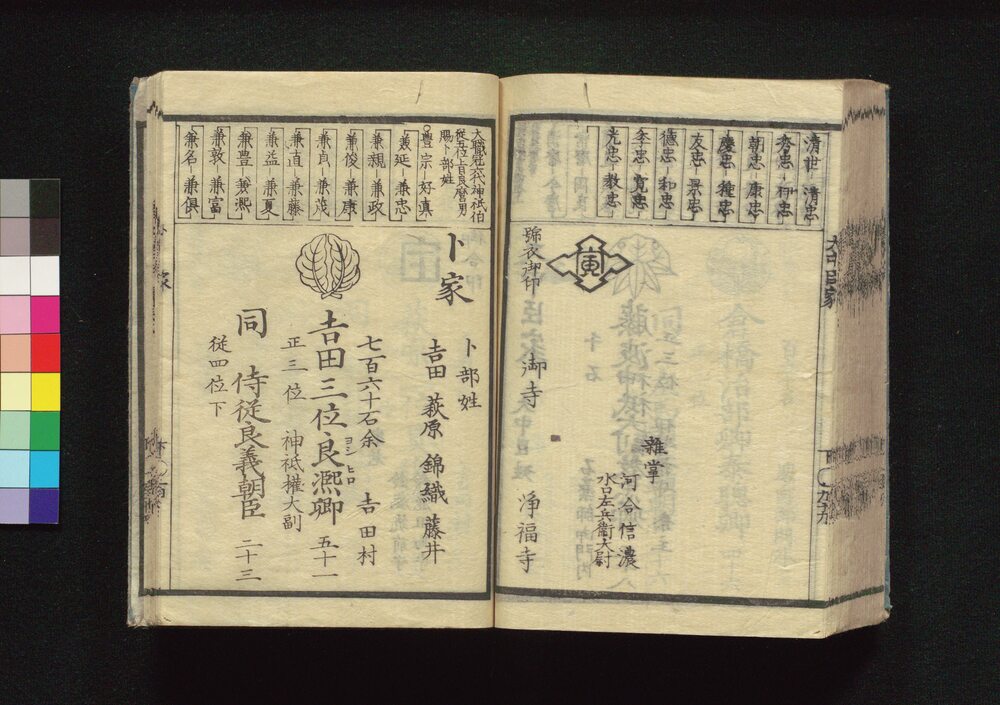 清世 清忠
秀忠 伊忠
朝忠 康忠
慶忠 種忠
友忠 景忠
德忠 和忠
季忠 寬忠
光忠 教忠
寅
錦衣御印
御寺 浄福寺
雜掌
河合信濃
水口左兵衞大尉
九十九
大職冠六代神祇伯
従五位上首良麿男
賜卜部姓
豊宗 好真
兼延 兼忠
兼親 兼政
兼俊 兼康
兼貞 兼茂
兼直 兼藤
兼益 兼夏
兼豊 兼凞
兼敦 兼富
兼名 兼俱
卜家
卜部姓
吉田 萩原 錦織 藤井
七百六十石余 吉田村
吉田三位良凞卿 五十一
ヨシ ヒロ
正三位 神祇權大副
同 侍従良義朝臣 二十三
従四位下